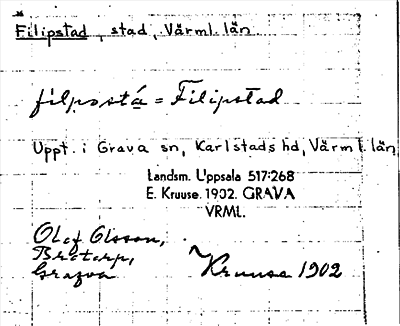 Filipstad, stad, Värml. län.
filpostá = Filipstad
Uppt. i Grava sn, Karlstads hd, Värml. län
Landsm. Uppsala 517:268
E. Kruuse. 1902. GRAVA
VRML.
Olof Olsson,
Bråtorp,
Grafva
Kruuse 1902